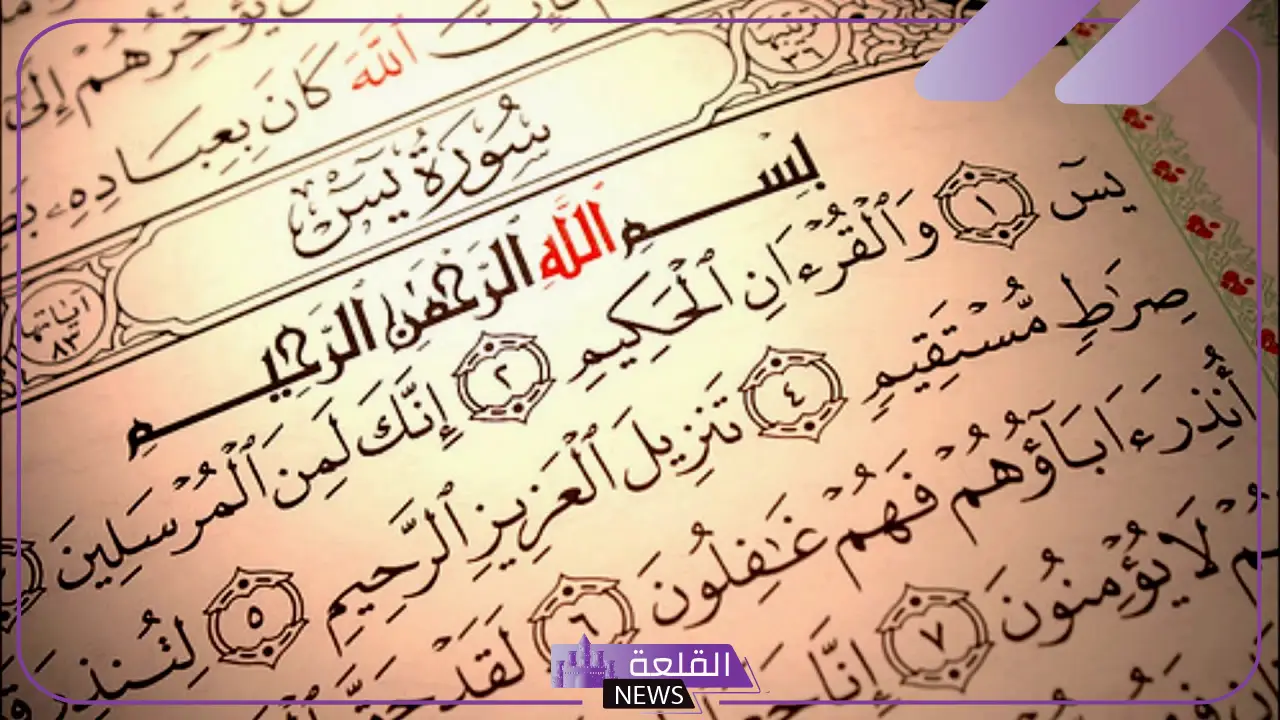 يُؤَخِّرُهُمْ إِلَىٰ
ٱللَّهَ كَانَ بِعِبَادِهِۦ
ترتيبها ٣٦
سُورَةُ يسٓ
آياتها ٨٣
بِسْمِ اللَّهِ الرَّحْمَٰنِ الرَّحِيمِ
يسٓ ١ وَٱلْقُرْءَانِ ٱلْحَكِيمِ ٢ إِنَّكَ لَمِنَ ٱلْمُرْسَلِينَ
صِرَٰطٍ مُّسْتَقِيمٍ ٤ تَنزِيلَ ٱلْعَزِيزِ ٱلرَّحِيمِ ٥ لِتُنذِرَ
أُنذِرَ ءَابَآؤُهُمْ فَهُمْ غَٰفِلُونَ ٦ لَقَدْ حَقَّ
لَا يُؤْمِنُونَ ٧ إِنَّا
القلعة
NEWS